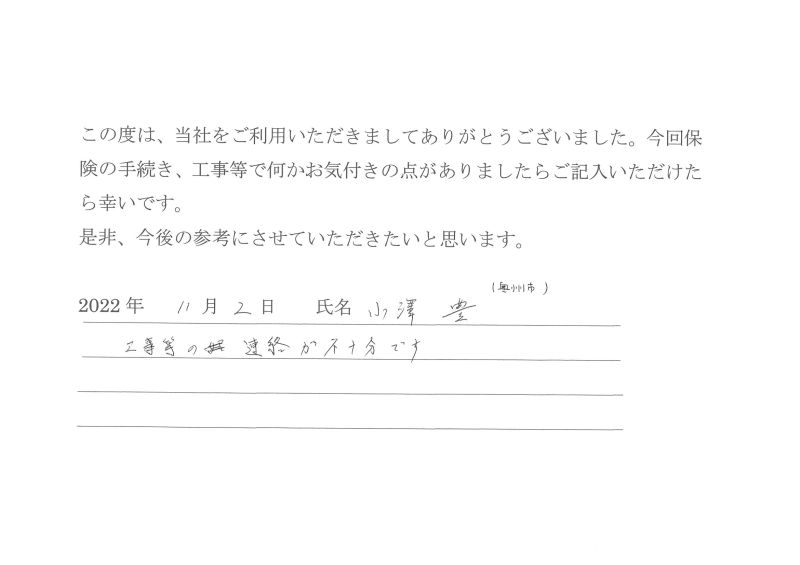 この度は、当社をご利用いただきましてありがとうございました。今回保
険の手続き、工事等で何かお気付きの点がありましたらご記入いただけた
ら幸いです。
是非、今後の参考にさせていただきたいと思います。
(奥州市)
2022年 11月2日 氏名 小澤 豊
工事等の 連絡が不十分です